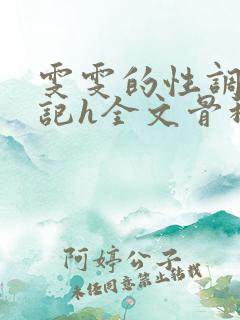 雯雯的性調
記h全文骨科
阿婷公子
未经同意禁止转载